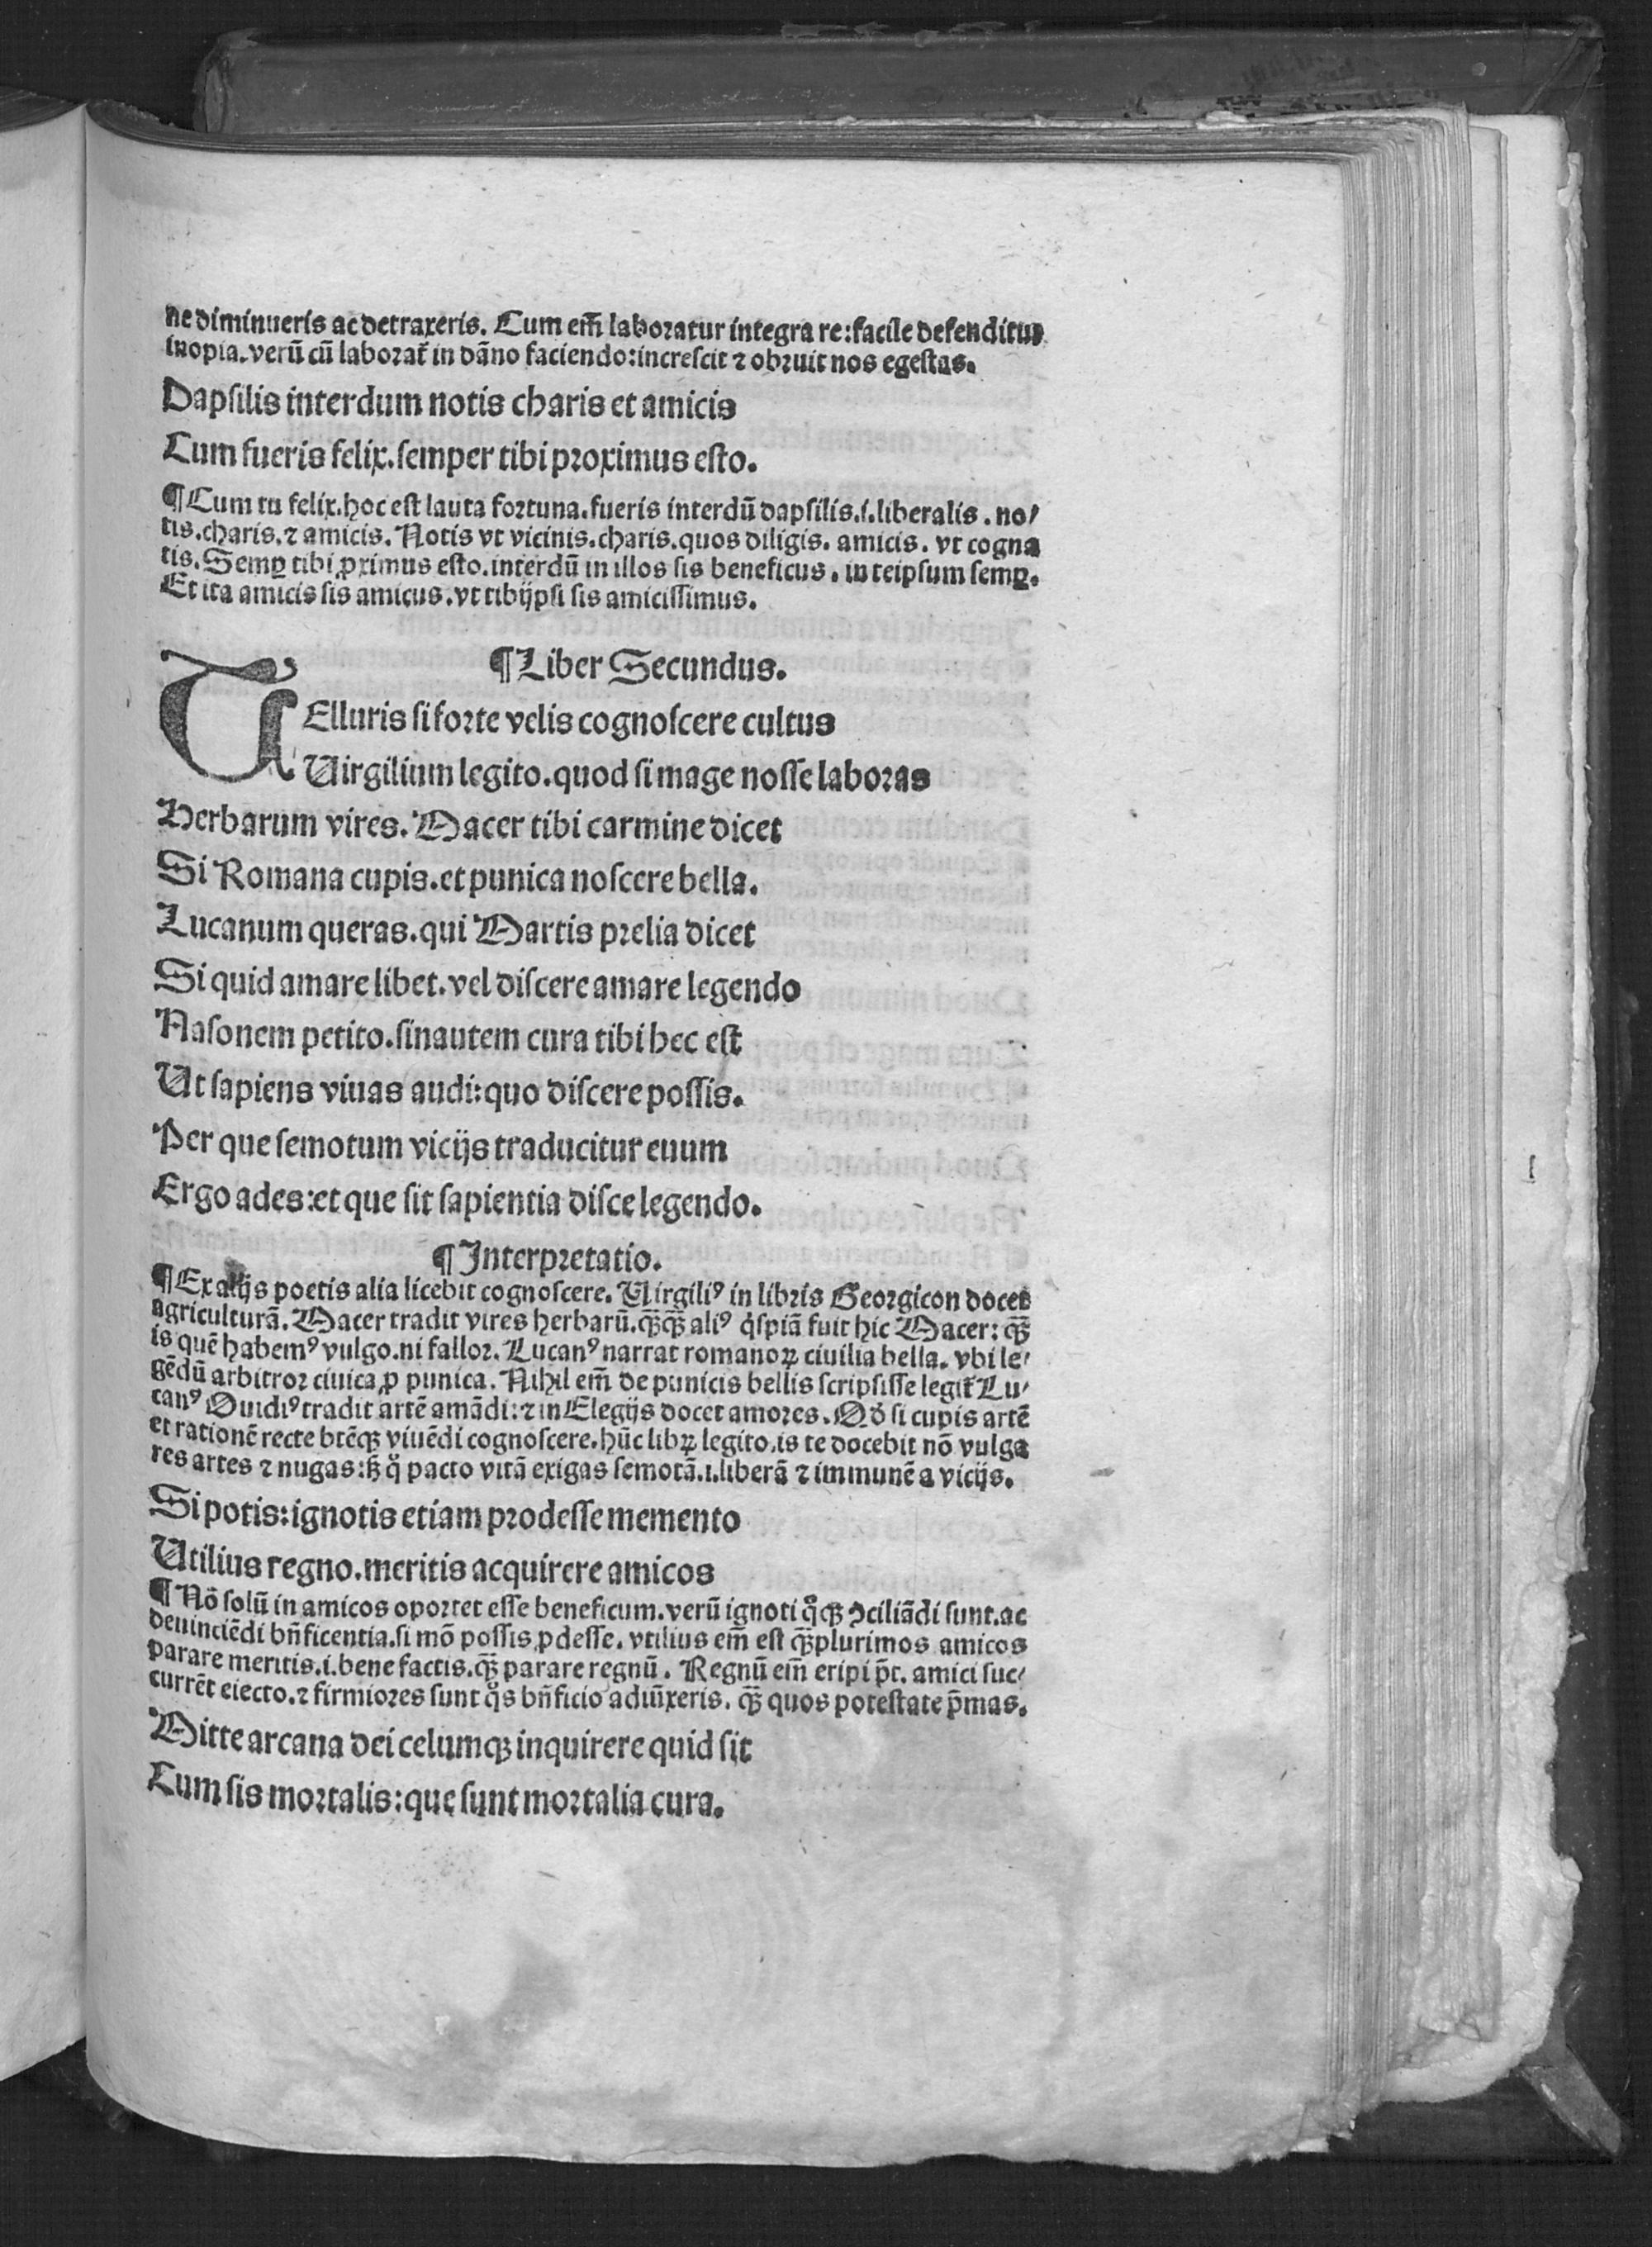 ne diminueris ac detraxeris. Cum em̄ laboratur integra re: facile defenditur
inopia. verū cū laborat̄ in dāno faciendo: increſcit ⁊ obruit nos egeſtas.
Dapſilis interdum notis charis et amicis
Cum fueris felix. ſemper tibi proximus eſto.
¶ Cum tu felix. hoc eſt lauta fortuna. fueris interdū dapſilis. i. liberalis. no/
tis. charis. ⁊ amicis. Notis vt vicinis. charis. quos diligis. amicis. vt cogna
tis. Semꝑ tibi ꝓximus eſto. interdū in illos ſis beneficus. in teipſum ſemꝑ.
Et ita amicis ſis amicus. vt tibijpſi ſis amiciſſimus.
¶ Liber Secundus.
TElluris ſi forte velis cognoſcere cultus
Uirgilium legito. quod ſi mage noſſe laboras
Herbarum vires. Macer tibi carmine dicet
Si Romana cupis. et punica noſcere bella.
Lucanum queras. qui Martis prelia dicet
Si quid amare libet. vel diſcere amare legendo
Naſonem petito. ſinautem cura tibi hec eſt
Ut ſapiens viuas audi: quo diſcere poſſis.
Per que ſemotum vicijs traducitur euum
Ergo ades: et que ſit ſapientia diſce legendo.
¶ Interpretatio.
¶ Ex alijs poetis alia licebit cognoſcere. Uirgiliꝰ in libris Georgicon docet
agriculturā. Macer tradit vires herbarū. qꝫ̄qꝫ̄ aliꝰ qͥſpiā fuit hic Macer: qꝫ̄
is quē habemꝰ vulgo. ni fallor. Lucanꝰ narrat romanoꝝ ciuilia bella. vbi le/
gēdū arbitror ciuica ꝓ punica. Nihil em̄ de punicis bellis ſcripſiſſe legit̄ Lu/
canꝰ Ouidiꝰ tradit artē amādi: ⁊ in Elegijs docet amores. Qd̓ ſi cupis artē
et rationē recte btēqꝫ viuēdi cognoſcere. hūc libꝝ legito. is te docebit nō vulga
res artes ⁊ nugas: ſꝫ qͦ pacto vitā exigas ſemotā. i. liberā ⁊ immunē a vicijs.
Si potis: ignotis etiam prodeſſe memento
Utilius regno. meritis acquirere amicos
¶ Nō ſolū in amicos oportet eſſe beneficum. verū ignoti qͦqꝫ ꝯciliādi ſunt. ac
deuinciēdi bn̄ficentia. ſi mō poſſis ꝓdeſſe. vtilius em̄ eſt qꝫ̄plurimos amicos
parare meritis. i. bene factis. qꝫ̄ parare regnū. Regnū em̄ eripi p̄t. amici ſuc/
currēt eiecto. ⁊ firmiores ſunt qͦs bn̄ficio adiūxeris. qꝫ̄ quos poteſtate p̄mas.
Mitte arcana dei celumqꝫ inquirere quid ſit
Cum ſis mortalis: que ſunt mortalia cura.